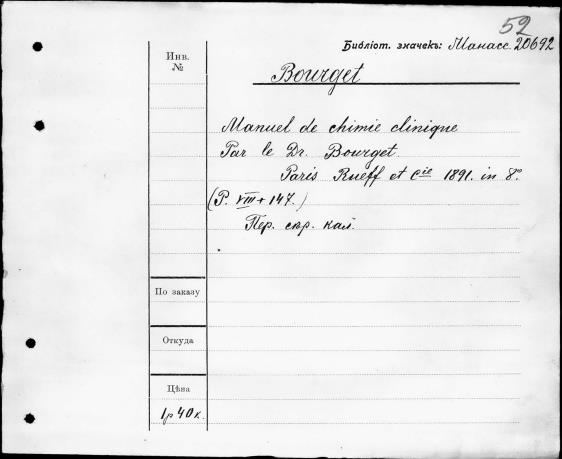 52
Библіот. значекъ: Манасс. 20692
Инв.
№
Bourget
Manuel de chimie clinique
Par le Dr. Bourget.
Paris Rueff et Cie 1891. in 8°.
(P. VIII + 147.)
Пер. скр. кал.
По заказу
Откуда
Цѣна
1р 40к.